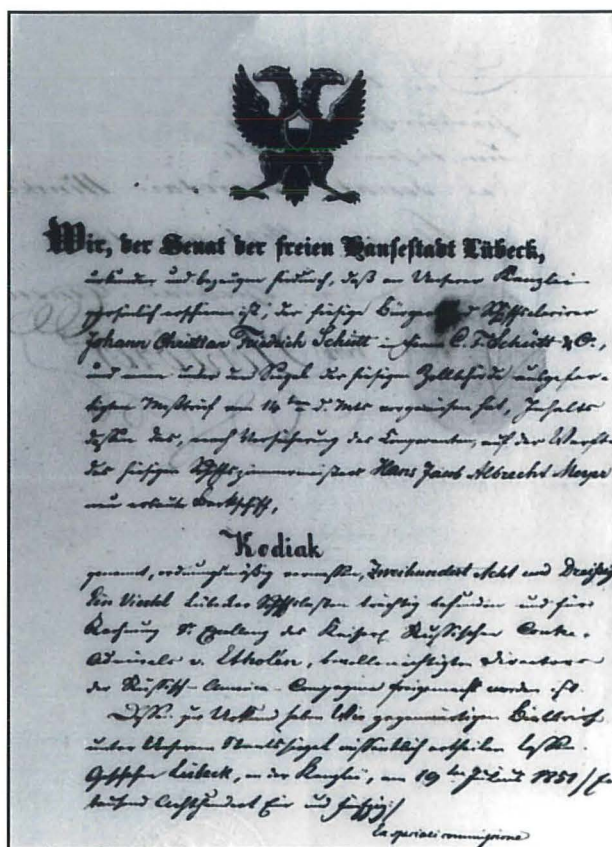 Wir, der Senat der freien Hansestadt Lübeck,
urkunden und bezeugen hiedurch, daß an Unserer Kanzlei
persönlich erschienen ist, der hiesige Bürger
Johann Christian Friedrich Schütt in Firma C. F. Schütt & C.,
und einen unter dem Siegel der hiesigen Zollbehörde ausgefer-
tigten Meßbrief vom 14ten d. Mts vorgewiesen hat, Inhalts
dessen das, nach Versicherung des Comparenten, auf der Werfte
des hiesigen Schiffszimmermeisters Hans Jacob Albrecht Meyer
neu erbaute Barkschiff,
Kodiak
genannt, ordnungsmäßig vermessen, Zweihundert Acht und Dreißig
Ein Viertel Lübecker Schiffslasten trächtig befunden und für
Rechnung des Kaiserl. Russischen Contre-
Admirals v. Etholen, bevollmächtigten Directors
der Russisch-Amerik. Compagnie freigemacht worden ist.
Dess. zur Urkund haben Wir gegenwärtigen Beilbrief
unter Unserem Staatssiegel wissentlich ertheilen lassen.
Geschehen Lübeck, in der Kanzlei, am 19ten Juli 1851
tausend Achthundert Ein und fünfzig/
Ex speciali commissione